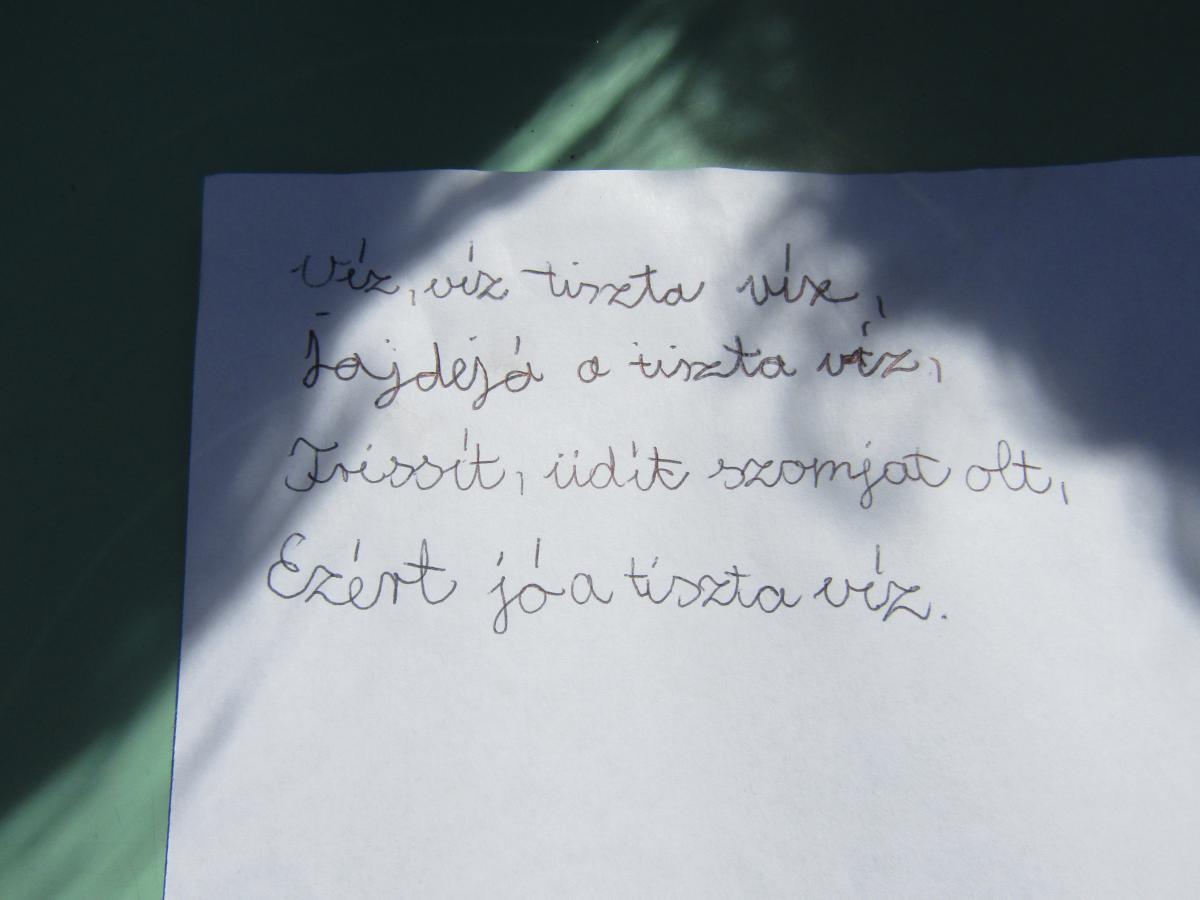 Víz, víz tiszta víz,
Jajdéjó a tiszta víz,
Frissít, üdít szomjat olt,
Ezért jó a tiszta víz.